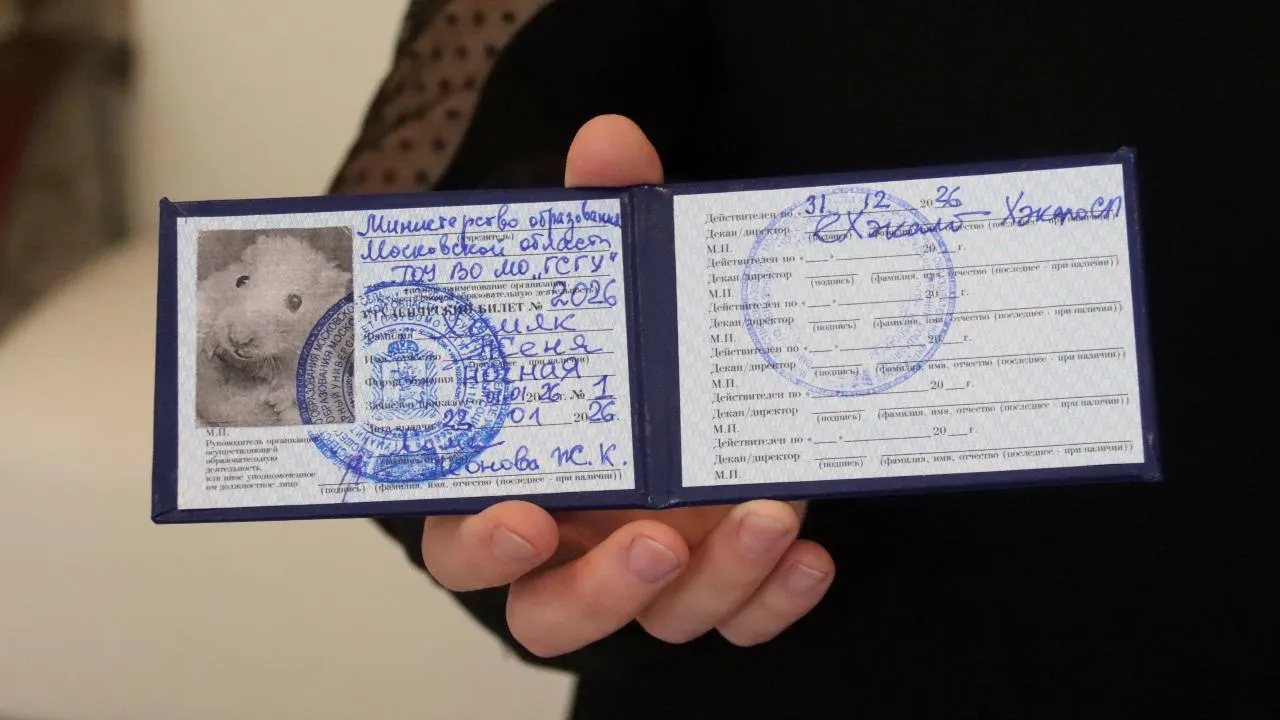 Министерство образования
(учредитель)
Московской области
ГОУ ВО МО „ГСГУ"
(полное наименование организации,
осуществляющей образовательную деятельность)
СТУДЕНЧЕСКИЙ БИЛЕТ № 2026
Фамилия Хомяк
Имя, отчество Женя
(последнее - при наличии)
Форма обучения ночная
Зачислен приказом от 01.01.2026. № 1
Дата выдачи 23 01 2026.
М.П.
Руководитель организации,
осуществляющей
образовательную
деятельность,
или иное уполномоченное
им должностное лицо
Ж. К.
(подпись) (фамилия, имя, отчество (последнее - при наличии)
Действителен по «31 12 2036
Декан/директор
(подпись) (фамилия, имя, отчество (последнее - при наличии))
М.П.
Действителен по «___» 20___г.
Декан/директор
(подпись) (фамилия, имя, отчество (последнее - при наличии))
М.П.
Действителен по «___» 20___г.
Декан/директор
(подпись) (фамилия, имя, отчество (последнее - при наличии))
М.П.
Действителен по «___» 20___г.
Декан/директор
(подпись) (фамилия, имя, отчество (последнее - при наличии))
М.П.
Действителен по «___» 20___г.
Декан/директор
(подпись) (фамилия, имя, отчество (последнее - при наличии))
М.П.
Действителен по «___» 20___г.
Декан/директор
(подпись) (фамилия, имя, отчество (последнее - при наличии))
М.П.